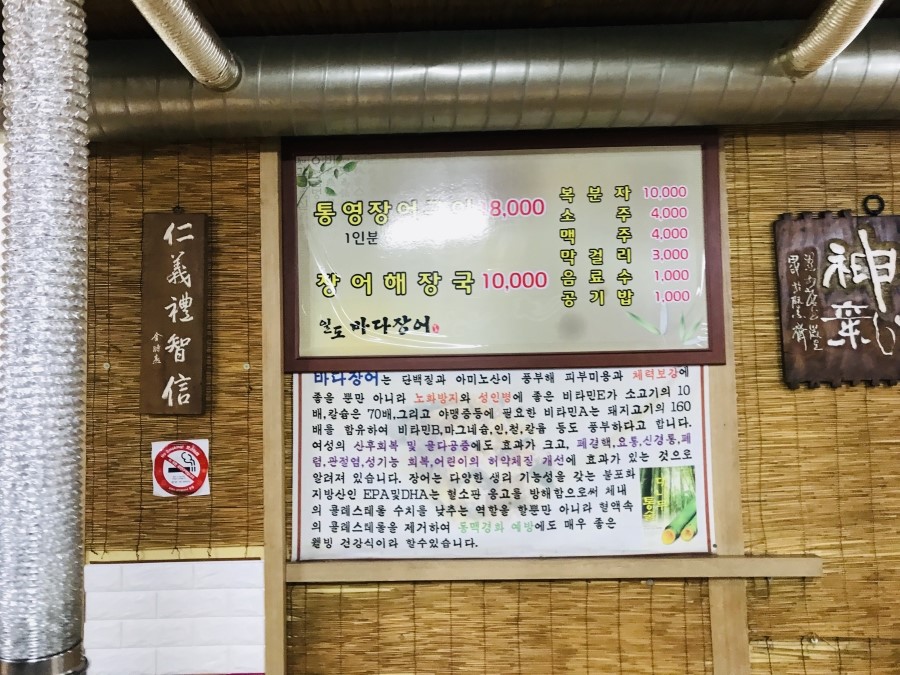 仁義禮智信
통영장어 8,000
1인분
장어해장국 10,000
일도 바다장어
복분자 10,000
소주 4,000
맥주 4,000
막걸리 3,000
음료수 1,000
공기밥 1,000
바다장어는 단백질과 아미노산이 풍부해 피부미용과 체력보강에
좋을 뿐만 아니라 노화방지와 성인병에 좋은 비타민E가 소고기의 10
배,칼슘은 70배,그리고 야맹증등에 필요한 비타민A는 돼지고기의 160
배를 함유하여 비타민B,마그네슘,인,철,칼륨 등도 풍부하다고 합니다.
여성의 산후회복 및 골다공증에도 효과가 크고, 폐결핵,요통,신경통,폐
렴,관절염,성기능 회복,어린이의 허약체질 개선에 효과가 있는 것으로
알려져 있습니다. 장어는 다양한 생리 기능성을 갖는 불포화
지방산인 EPA및DHA는 혈소판 응고를 방해함으로써 체내
의 콜레스테롤 수치를 낮추는 역할을 할뿐만 아니라 혈액속
의 콜레스테롤을 제거하여 동맥경화 예방에도 매우 좋은
웰빙 건강식이라 할수있습니다.
神